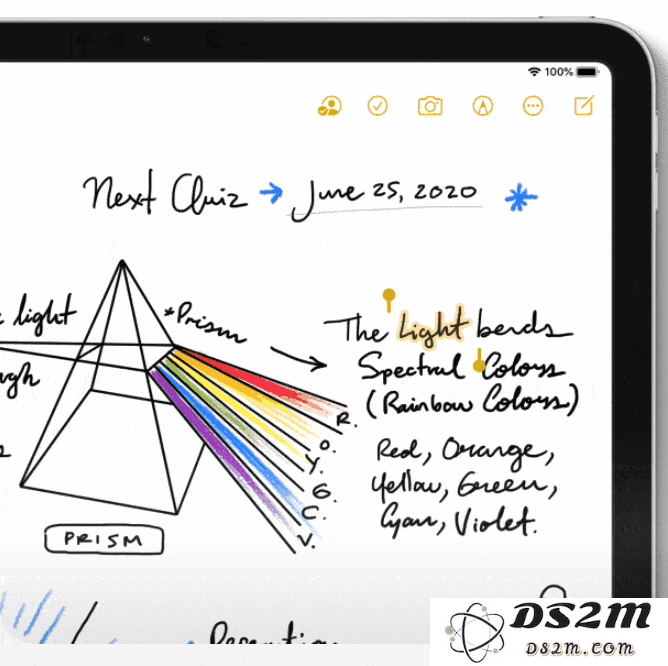 100%
Next Quiz → June 25, 2020 *
light
*Prism
The light bends
Spectral Colors
(Rainbow Colors)
R.
O.
Y.
G.
C.
V.
Red, Orange,
Yellow, Green,
Cyan, Violet.
PRISM
DS2M
DS2M.COM